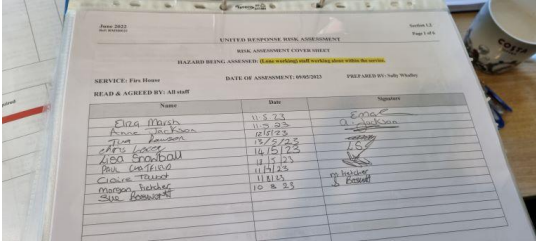 June 2022
Section 1.2
Page 1 of 6
UNITED RESPONSE RISK ASSESSMENT
RISK ASSESSMENT COVER SHEET
HAZARD BEING ASSESSED: (Lone working) staff working alone within the service.
SERVICE: Fire House DATE OF ASSESSMENT: 09/05/2023 PREPARED BY: Sally Whalley
READ & AGREED BY: All staff
Name Date Signature
Eliza Marsh 11.5.23
Anne Jackson 11.5.23 a. Jackson
Tina 12/5/23
13/5/23
Lisa Snowball 14/5/23 LS
Paul 12/5/23
Claire Talbot
Morgan Fletcher 11/8/23 m fletcher
Sue Bosworth 10 8 23 S Bosworth
COSTA